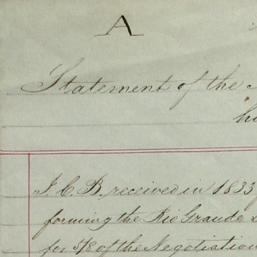 A
Statement of the
J. C. B. received in 1833
forming the Rio Grande
for 5/8 of the Negotiation